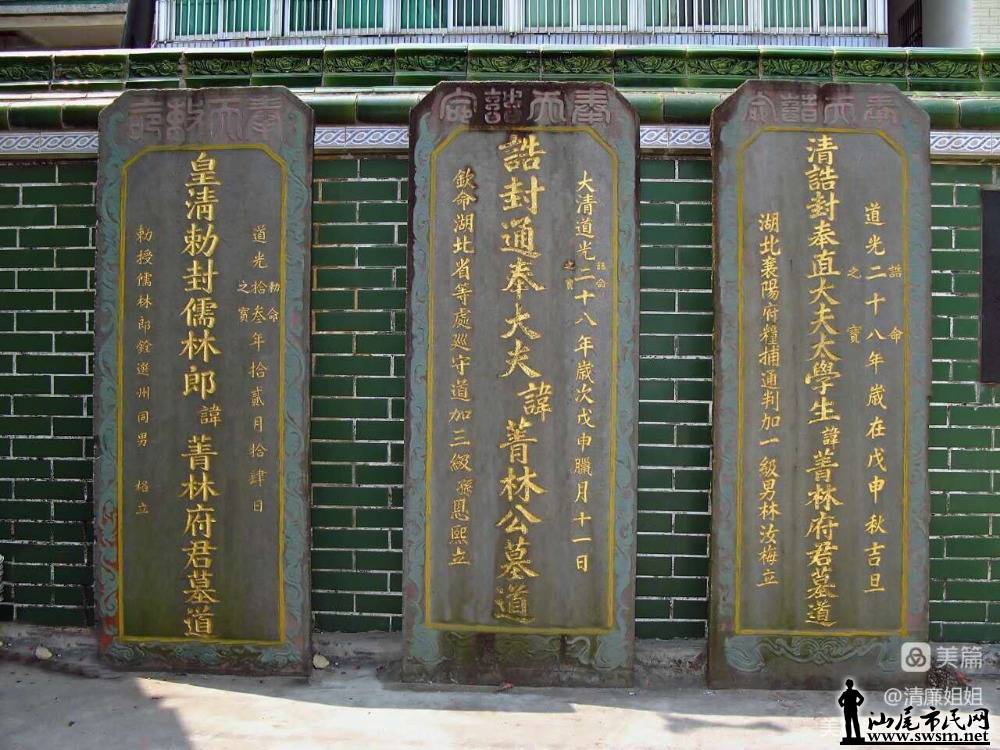 奉天誥命
道光二十八年歲在戊申秋吉旦
誥命之寶
清誥封奉直大夫太學生諱菁林府君墓道
湖北襄陽府糧捕通判加一級男林汝梅立
奉天誥命
大清道光二十八年歲次戊申臘月十一日
誥命之寶
誥封通奉大夫諱菁林公墓道
欽命湖北省等處巡守道加三級孫恩熙立
奉天敕命
道光拾叁年拾貳月拾肆日
勅命之寶
皇清勅封儒林郎諱菁林府君墓道
勅授儒林郎銓選州同男 格立
美篇
@清廉姐姐
汕尾市民网
www.swsm.net